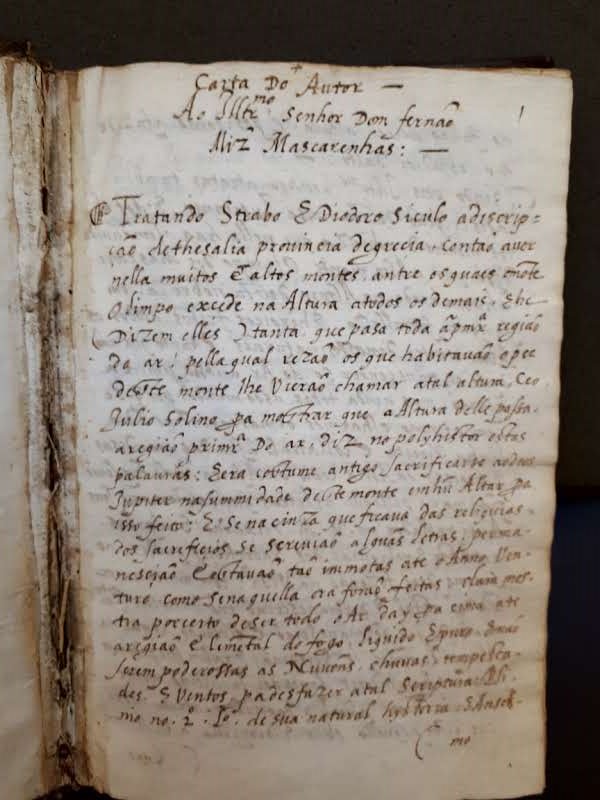 Carta Do Autor —
Ao Illtr^mo Senhor Dom fernaõ
Miz̃ Mascarenhas: —
1
Tratando Strabo E Diodoro Siculo a discrip=
caõ dethesalia provincia degrecia, contaõ aver
nella muitos E altos montes, antre osquaes o mõte
Olimpo excede na Altura atodos os demais, E he
(Dizem elles) tanta que pasa toda a pmr^a regiaõ
do ar; pella qual rezaõ os que habitavaõ o pee
deste monte lhe Vieraõ chamar atal altura, Ceo
Julio Solino pa mostrar que a Altura delle passa
aregiaõ primr^a Do ar, diz no polyhistor estas
palauras: Eera costume antigo sacrificarse
Jupiter nasummidade deste monte emhũ Altar pa
isso feito; E Se na cinza que ficava das reliquias
dos sacrificios se screviaõ alguãs letras, perma-
nesciaõ E estavaõ taõ immotas ate o Anno Ven-
turo, como sena quella ora foraõ feitas;
tra porcerto deser todo o Ar day pa cima ate
aregiaõ Elemetal do fogo, liquido E puro,
serem poderossas as Nuvens, chuvas, tempesta-
des, E Ventos, pa desfazer atal Scriptura. Pli-
nio no. 2º. Lo. de sua natural hystoria. SAnsel-
mo